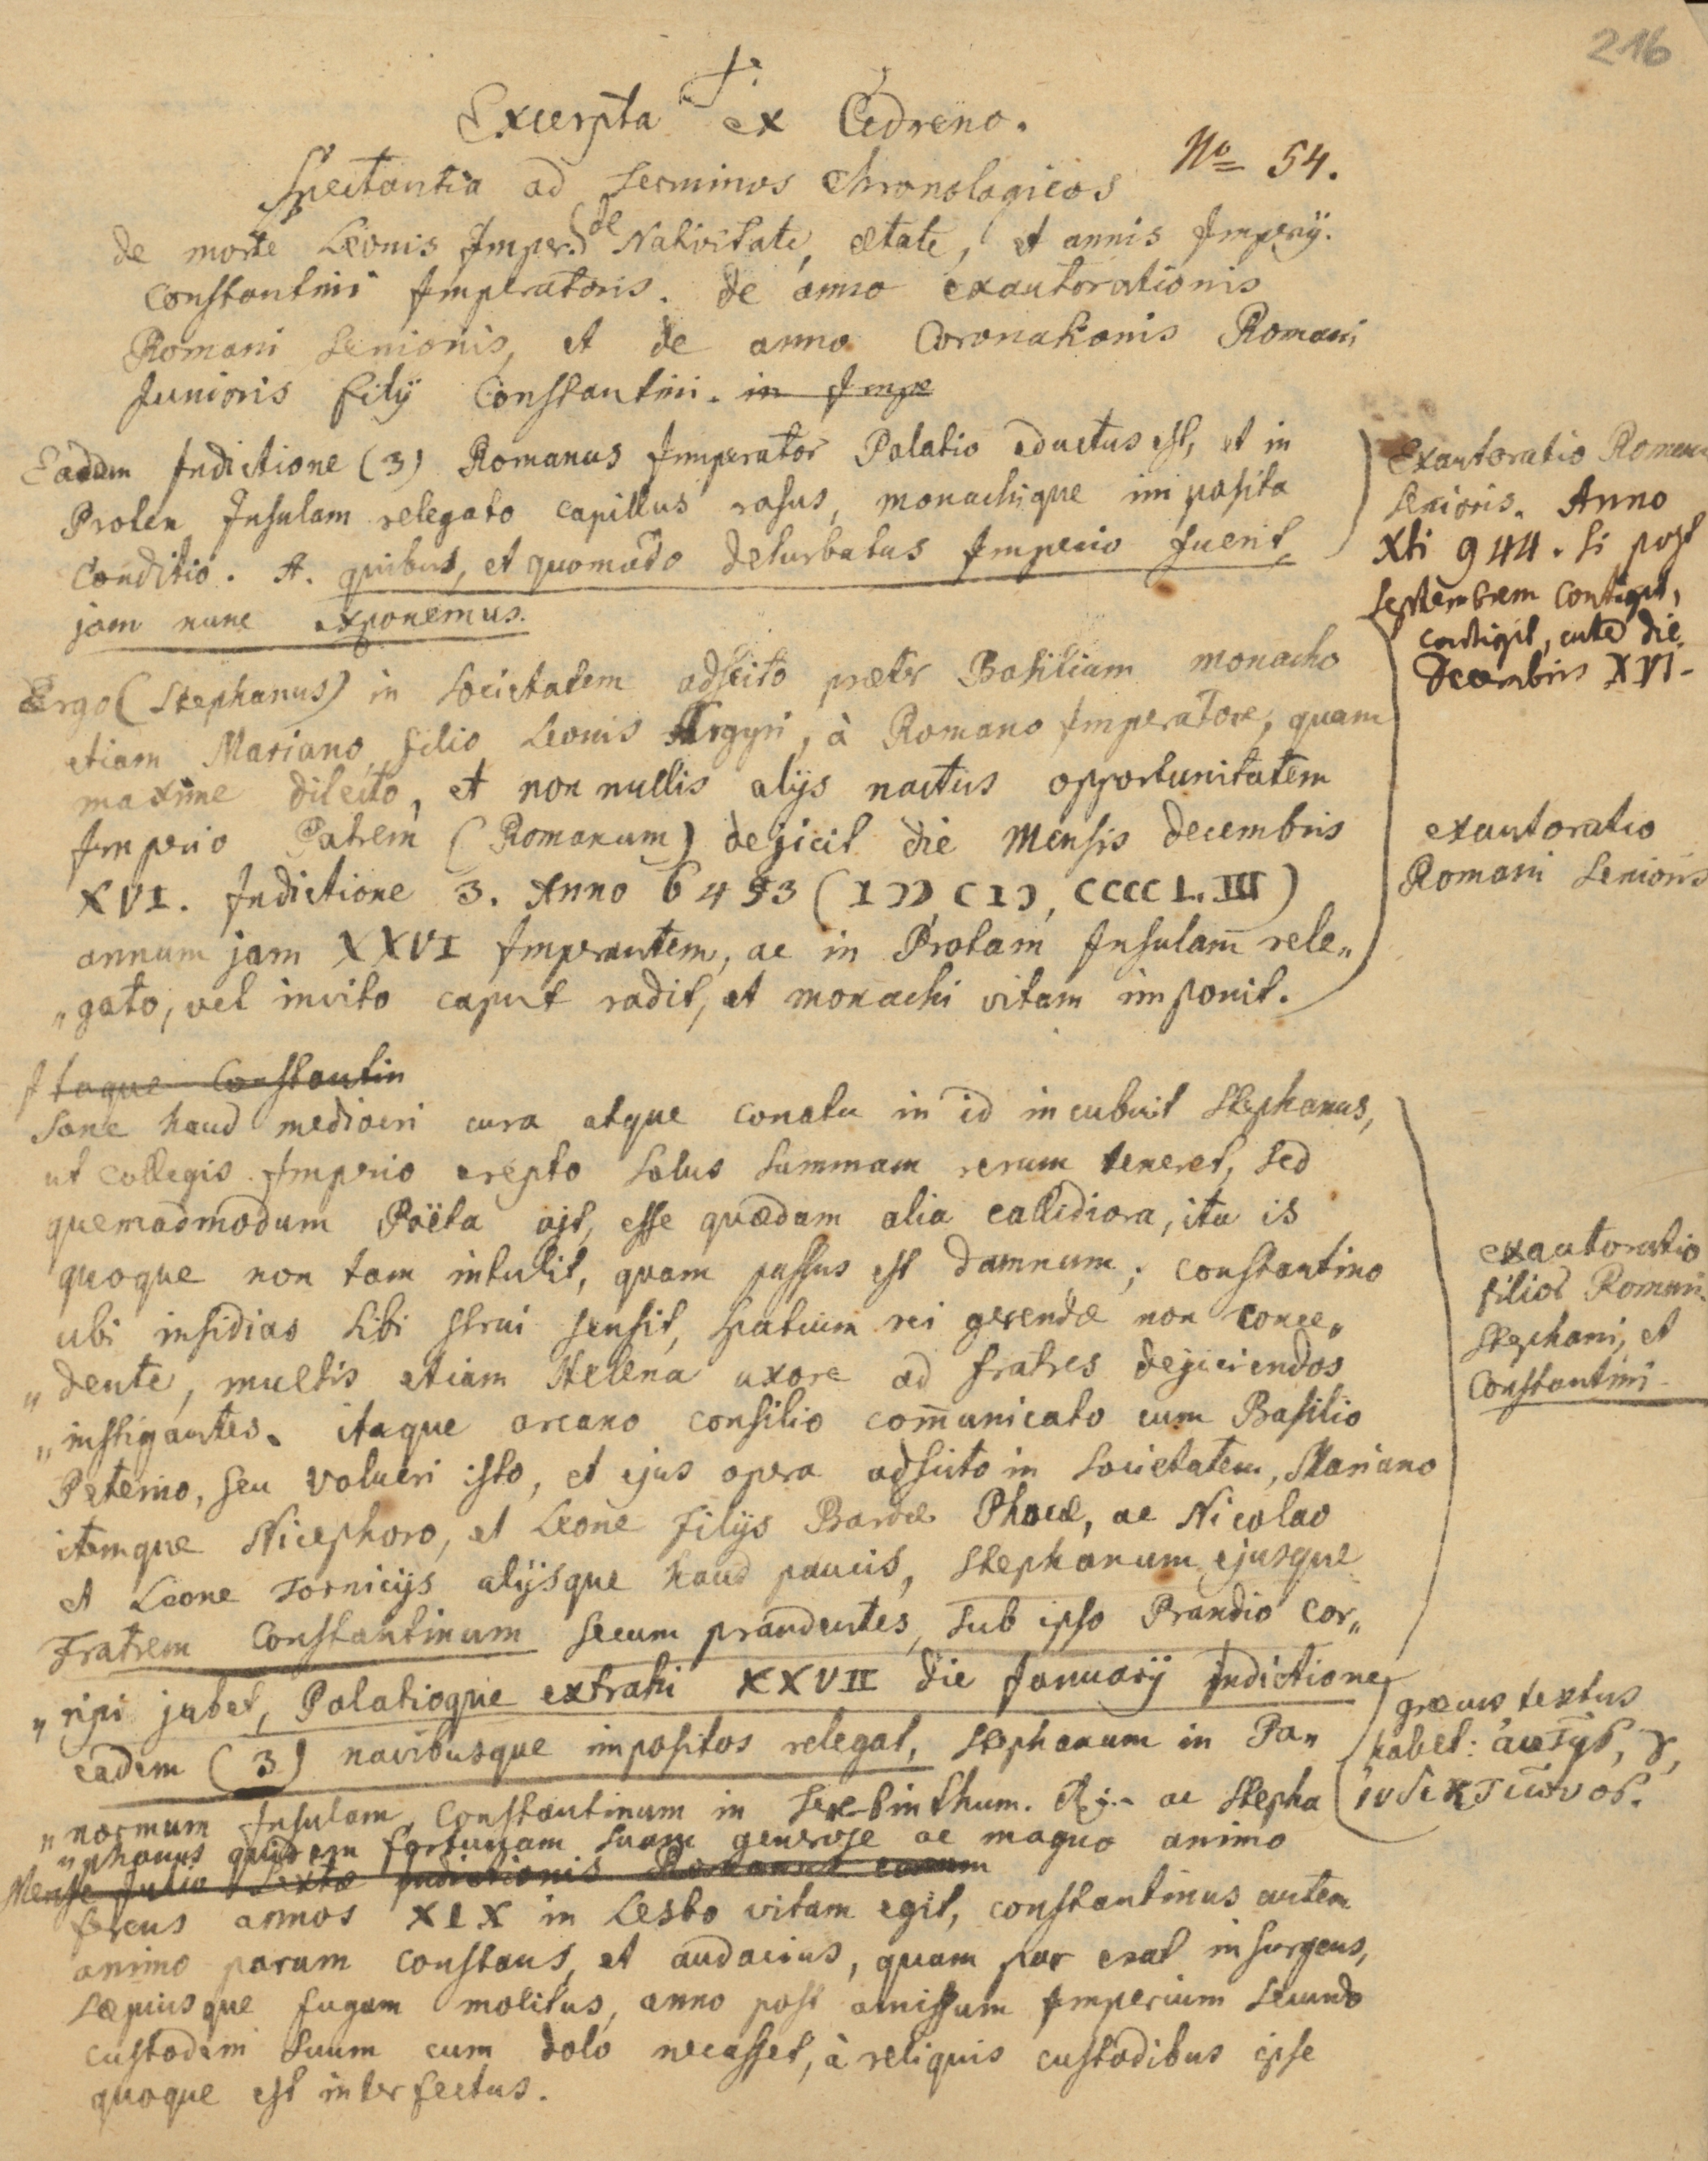 216
†
Excerpta ex Cedreno.
No 54.
Spectantia ad terminos Chronologicos
de morte Leonis Imper. de Nativitate, ætate, et annis Imperÿ
Constantini Imperatoris. de anno exautorationis
Romani Senioris, et de anno Coronationis Romani
Junioris filÿ Constantini. in Impe
Eadem Indictione (3) Romanus Imperator Palatio eductus est, et in
Proten Insulam relegato capillus rasus, monachique imposita
Conditio. A. quibus, et quomodo deturbatus Imperio fuerit,
jam nunc exponemus.
Exautoratio Romani
Senioris. Anno
Xti 944. si post
Septembrem contigit,
contigit, ante die
Decembris XVI-
Ergo (Stephanus) in Societatem adscito præter Basilium monacho
etiam Mariano, filio Leonis Argyri, à Romano Imperatore, quam
maxime dilecto, et non nullis alÿs nactus opportunitatem
Imperio Patrem (Romanum) dejicit die Mensis Decembris
XVI. Indictione 3. Anno 6453 (IↃↃ CIↃ, CCCC L. III)
annum jam XXVI Imperantem, ac in Protam Insulam rele„
„gato, vel invito caput radit, et monachi vitam imponit.
exautoratio
Romani Senioris
Itaque Constantin
Sane haud mediocri cura atque conatu in id incubuit Stephanus,
ut Collegis Imperio erepto solus summam rerum teneret, sed
quemadmodum Poëta ajt, esse quædam alia callidiora, ita is
quoque non tam intulit, quam passus est damnum; constantino
ubi insidias sibi strui sensit, spatium rei gerendæ non conce„
„dente, multis etiam Helena uxore ad fratres dejiciendos
„instigantes. itaque arcano consilio com̄unicato cum Basilio
Peterio, seu volucri isto, et ejus opera adscito in Societatem, Mariano
itemque Nicephoro, et Leone filÿs Bardæ Phocæ, ac Nicolao
et Leone Tornicÿs alÿsque haud paucis, Stephanum, ejusque
Fratrem Constantinum secum prandentes, sub ipso Prandio cor„
„ripi jubet, Palatioque extrahi XXVII die Januarÿ Indictione
eadem (3) navibusque impositos relegat, Stephanum in Pa„
„normum Insulam, Constantinum in Terebinthum. ac Stepha
„phanus quidem fortunam suam generose ac magno animo
Mense Julio Sextæ Indictionis Romanus
ferens annos XIX in Lesbo vitam egit, constantinus autem
animo parum constans, et audacius, quam par erat insurgens,
sæpiusque fugam molitus, anno post amissum Imperium secundo
custodem suum cum dolo necasset, à reliquis custodibus ipse
quoque est interfectus.
exautoratio
filior Romani
Stephani, et
Constantini-
græcus textus
habet: αυτῆς, γ,
ἰνδικτιῶνος.